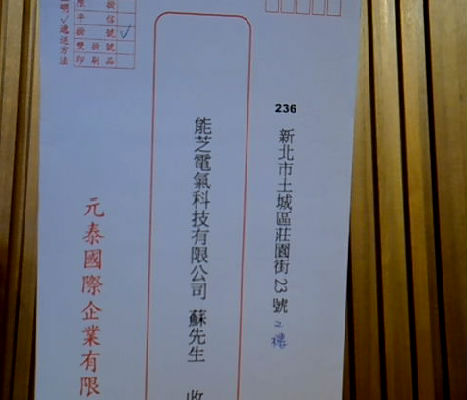 236
新北市土城區莊園街23號2樓
能芝電氣科技有限公司 蘇先生 收
元泰國際企業有限